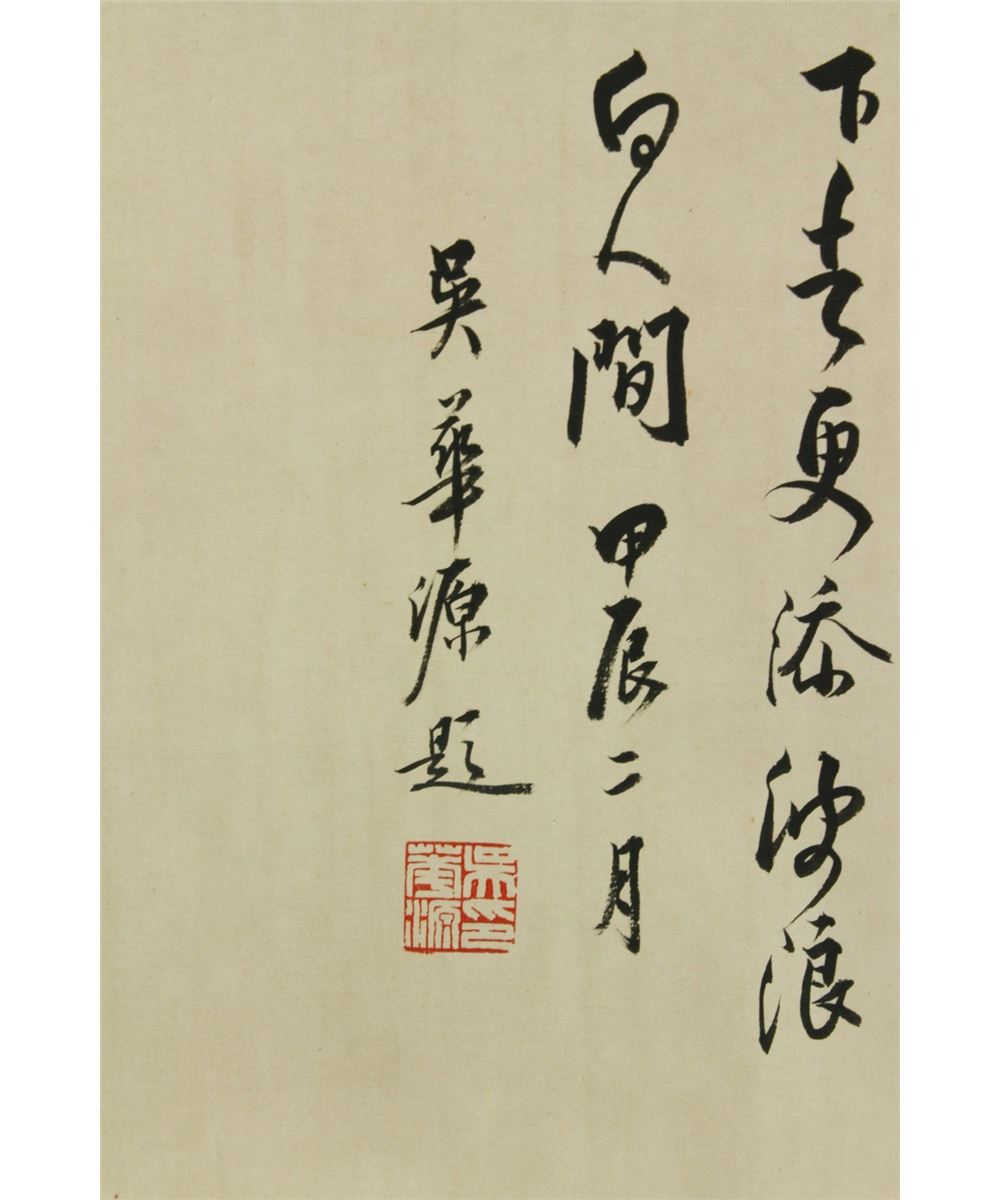 下去更添波浪
向人間 甲辰二月
吳華源題
吳華源印